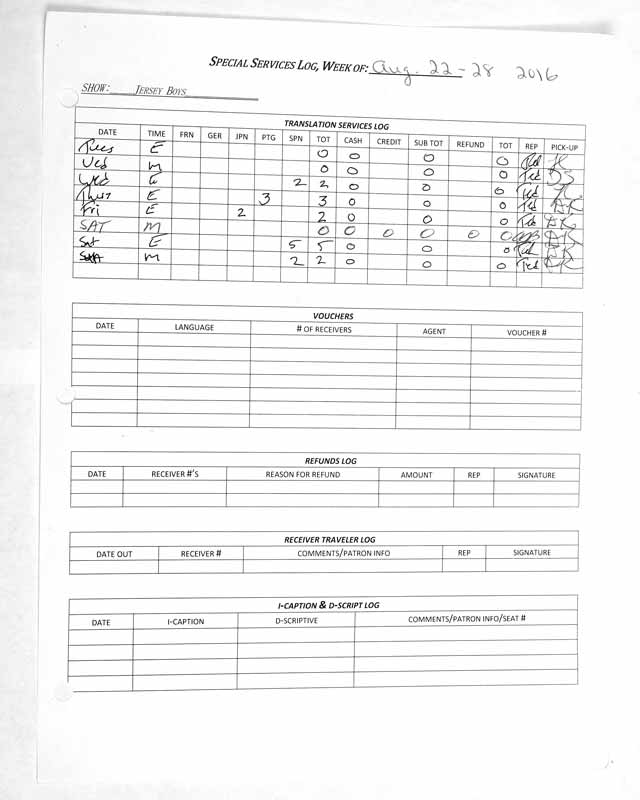 SPECIAL SERVICES LOG, WEEK OF: Aug. 22-28 2016
SHOW: JERSEY BOYS
TRANSLATION SERVICES LOG
DATE TIME FRN GER JPN PTG SPN TOT CASH CREDIT SUB TOT REFUND TOT REP PICK-UP
Tues E 0 0 0 0 Ted
Wed M 0 0 0 0 Ted
Wed E 2 2 0 0 0 Ted
Thur E 3 3 0 0 0 Ted
Fri E 2 2 0 0 0 Ted
SAT M 0 0 0 0 0 0
Sat E 5 5 0 0 0 Ted
M 2 2 0 0 0 Ted
VOUCHERS
DATE LANGUAGE # OF RECEIVERS AGENT VOUCHER #
REFUNDS LOG
DATE RECEIVER #'S REASON FOR REFUND AMOUNT REP SIGNATURE
RECEIVER TRAVELER LOG
DATE OUT RECEIVER # COMMENTS/PATRON INFO REP SIGNATURE
I-CAPTION & D-SCRIPT LOG
DATE I-CAPTION D-SCRIPTIVE COMMENTS/PATRON INFO/SEAT #